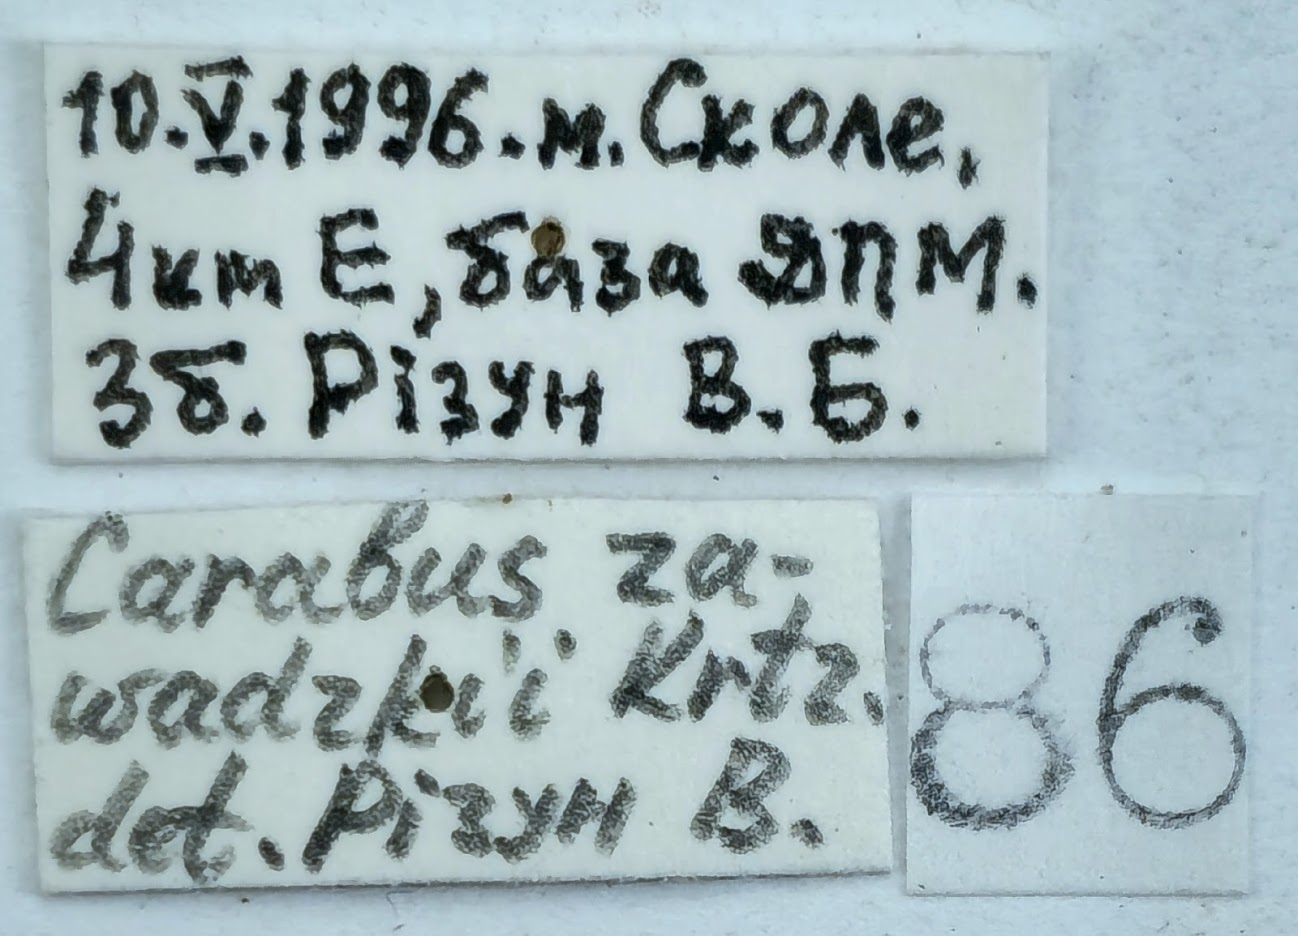 10.V.1996. м. Сколе,
4 km E, база ДПМ.
Зб. Різун В.Б.
Carabus za-
wadzkii Krtz.
det. Різун В.
86